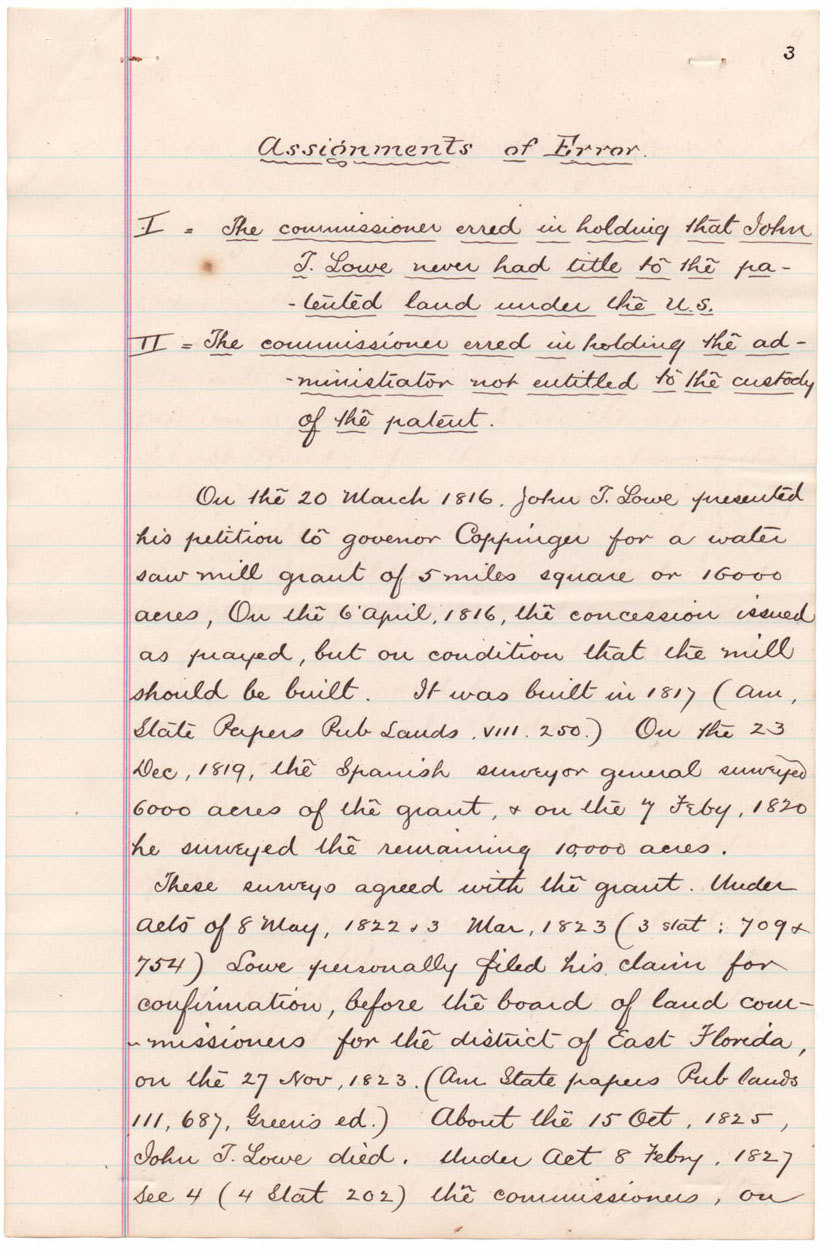 3
Assignments of Error.
I = The commissioner erred in holding that John
T. Lowe never had title to the pa-
-tented land under the U.S.
II = The commissioner erred in holding the ad-
-ministrator not entitled to the custody
of the patent.
On the 20 March 1816. John T. Lowe presented
his petition to govenor Coppinger for a water
saw mill grant of 5 miles square or 16000
acres, On the 6 april, 1816, the concession issued
as prayed, but on condition that the mill
should be built. It was built in 1817 (Am,
State Papers Pub Lands, VIII. 250.) On the 23
Dec, 1819, the Spanish surveyor general surveyed
6000 acres of the grant, & on the 7 Feby, 1820
he surveyed the remaining 10,000 acres.
These surveys agreed with the grant. Under
acts of 8 May, 1822 & 3 Mar, 1823 (3 stat: 709 &
754) Lowe personally filed his claim for
confirmation, before the board of land com-
-missioners for the district of East Florida,
on the 27 Nov, 1823. (Am State papers Pub lands
111, 687, Green's ed.) About the 15 Oct, 1825,
John T. Lowe died. Under Act 8 Febry, 1827
Sec 4 (4 Stat 202) the commissioners, on